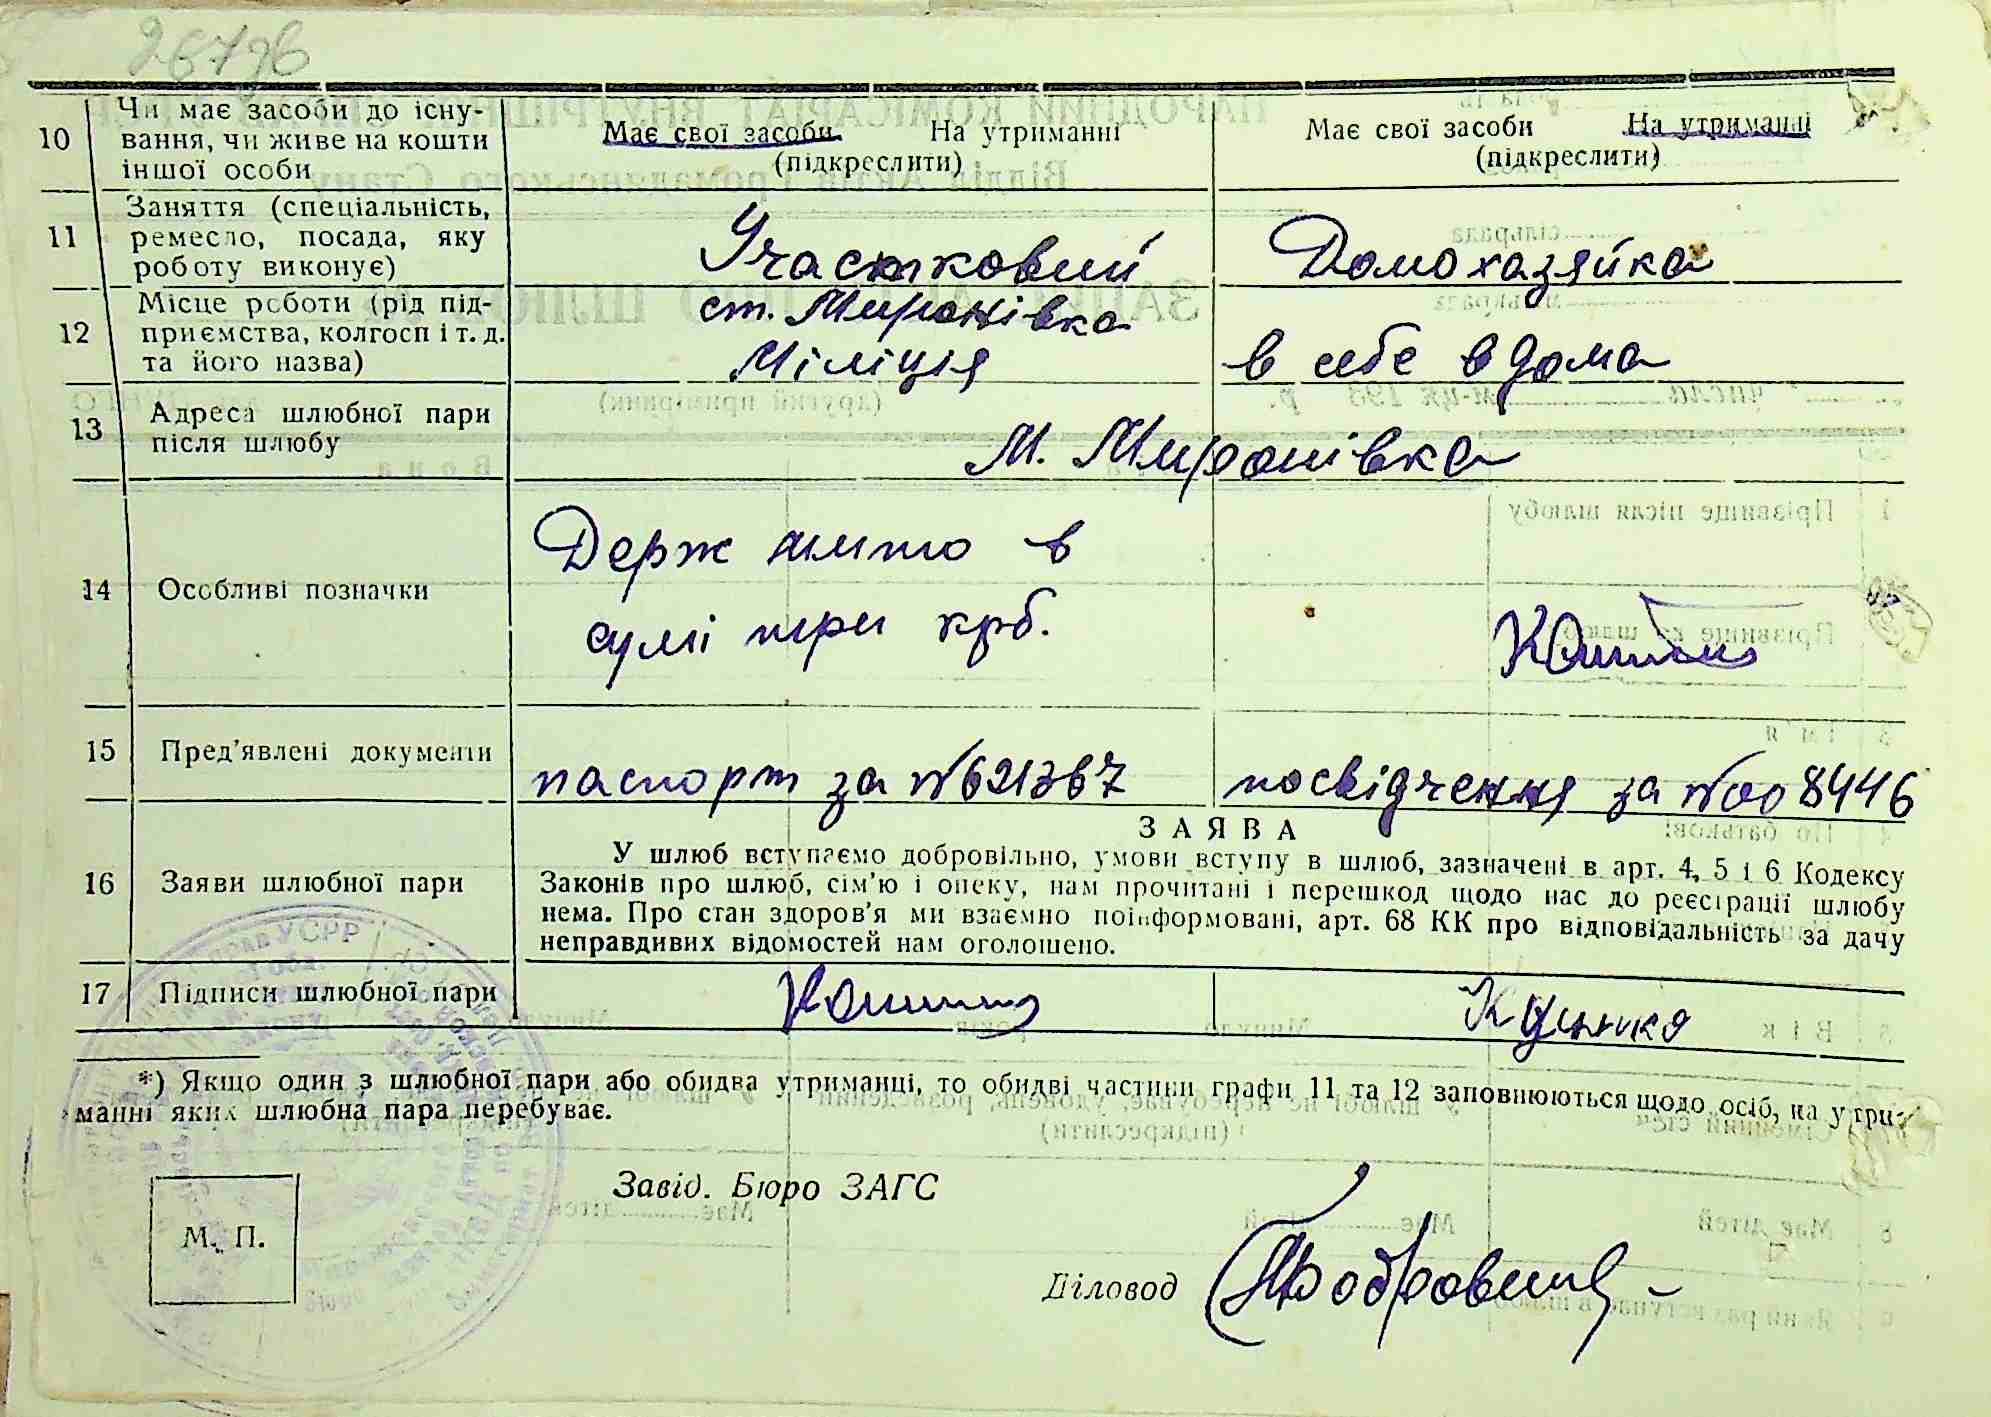 26796
10 Чи має засоби до існу-
вання, чи живе на кошти
іншої особи
Має свої засоби На утриманні
(підкреслити)
Має свої засоби На утриманні
(підкреслити)
11 Заняття (спеціальність,
ремесло, посада, яку
роботу виконує)
Участковий
Домохазяйка
12 Місце роботи (рід під-
приємства, колгосп і т. д.
та його назва)
ст. Миронівка
Міліція
в себе вдома
13 Адреса шлюбної пари
після шлюбу
М. Миронівка
14 Особливі позначки
Держ мито в
сумі три крб.
15 Пред'явлені документи
паспорт за №621367
посвідчення за №008446
16 Заяви шлюбної пари
ЗАЯВА
У шлюб вступаємо добровільно, умови вступу в шлюб, зазначені в арт. 4, 5 і 6 Кодексу
Законів про шлюб, сім'ю і опеку, нам прочитані і перешкод щодо нас до реєстрації шлюбу
нема. Про стан здоров'я ми взаємно поінформовані, арт. 68 КК про відповідальність за дачу
неправдивих відомостей нам оголошено.
17 Підписи шлюбної пари
*) Якщо один з шлюбної пари або обидва утриманці, то обидві частини графи 11 та 12 заповнюються щодо осіб, на утри-
манні яких шлюбна пара перебуває.
Завід. Бюро ЗАГС
М. П.
Діловод
УСРР